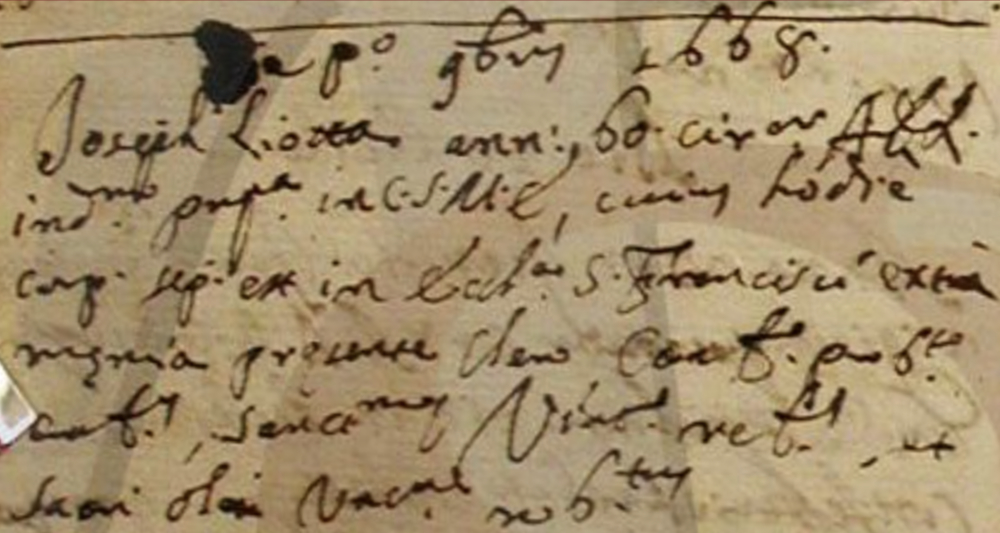 Die p.º 9bris 1668.
Joseph Liotta ann: 60. cir.
ind. prop.ª in C.S.M.E, cuius hodie
corp. sep. est in Eccl.ª S. Francisci extra
męnia presente Clero Conf.
conf.s, Sanct.mo Viat. ref.s, et
Sacri olei Unc.ne rob.tus